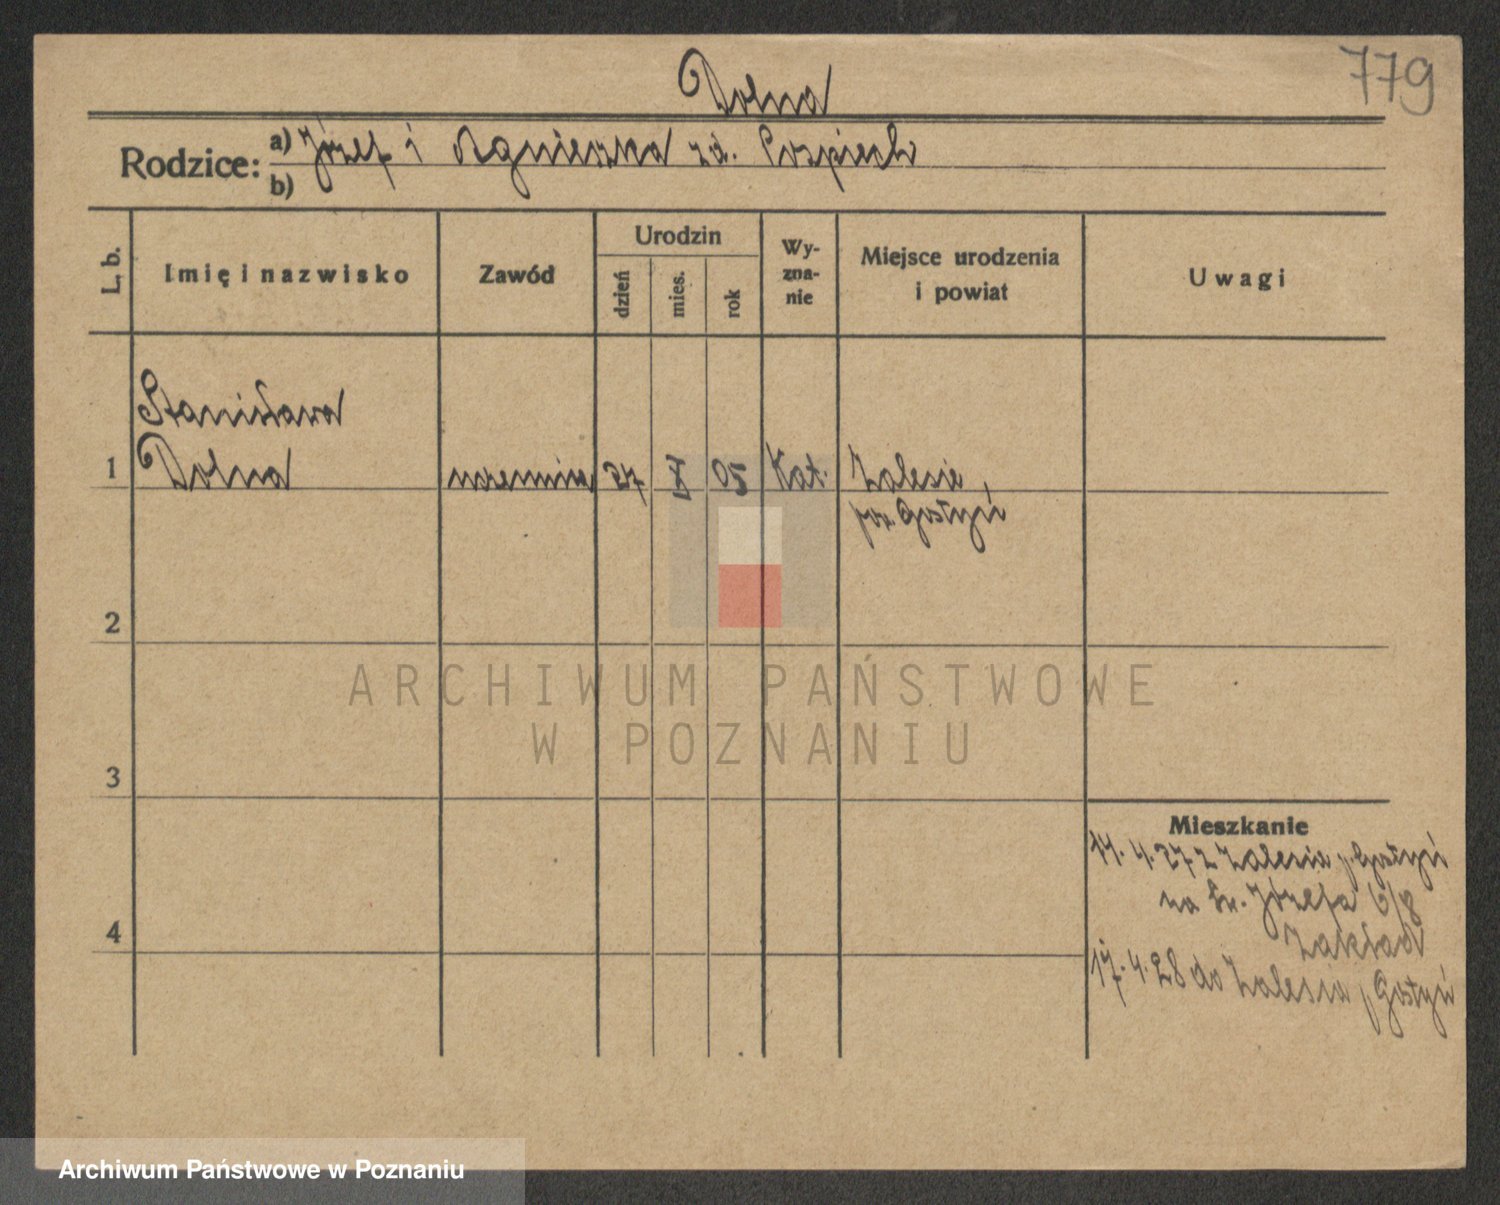 779
Dolna
Rodzice: a) Józef i Agnieszka zd. Pospiech
b)
L. b.
Imię i nazwisko
Zawód
Urodzin
dzień
mies.
rok
Wy-
zna-
nie
Miejsce urodzenia
i powiat
Uwagi
Stanisława
1 Dolna uczennica 27 X 05 Kat. Zalesie,
pow. Gostyń
2
3
4
Mieszkanie
11. 4. 27 z Zalesia p. Gostyń
na Św. Józefa 6/8
Zakład
17. 4. 28 do Zalesia p. Gostyń
ARCHIWUM PAŃSTWOWE
W POZNANIU
Archiwum Państwowe w Poznaniu